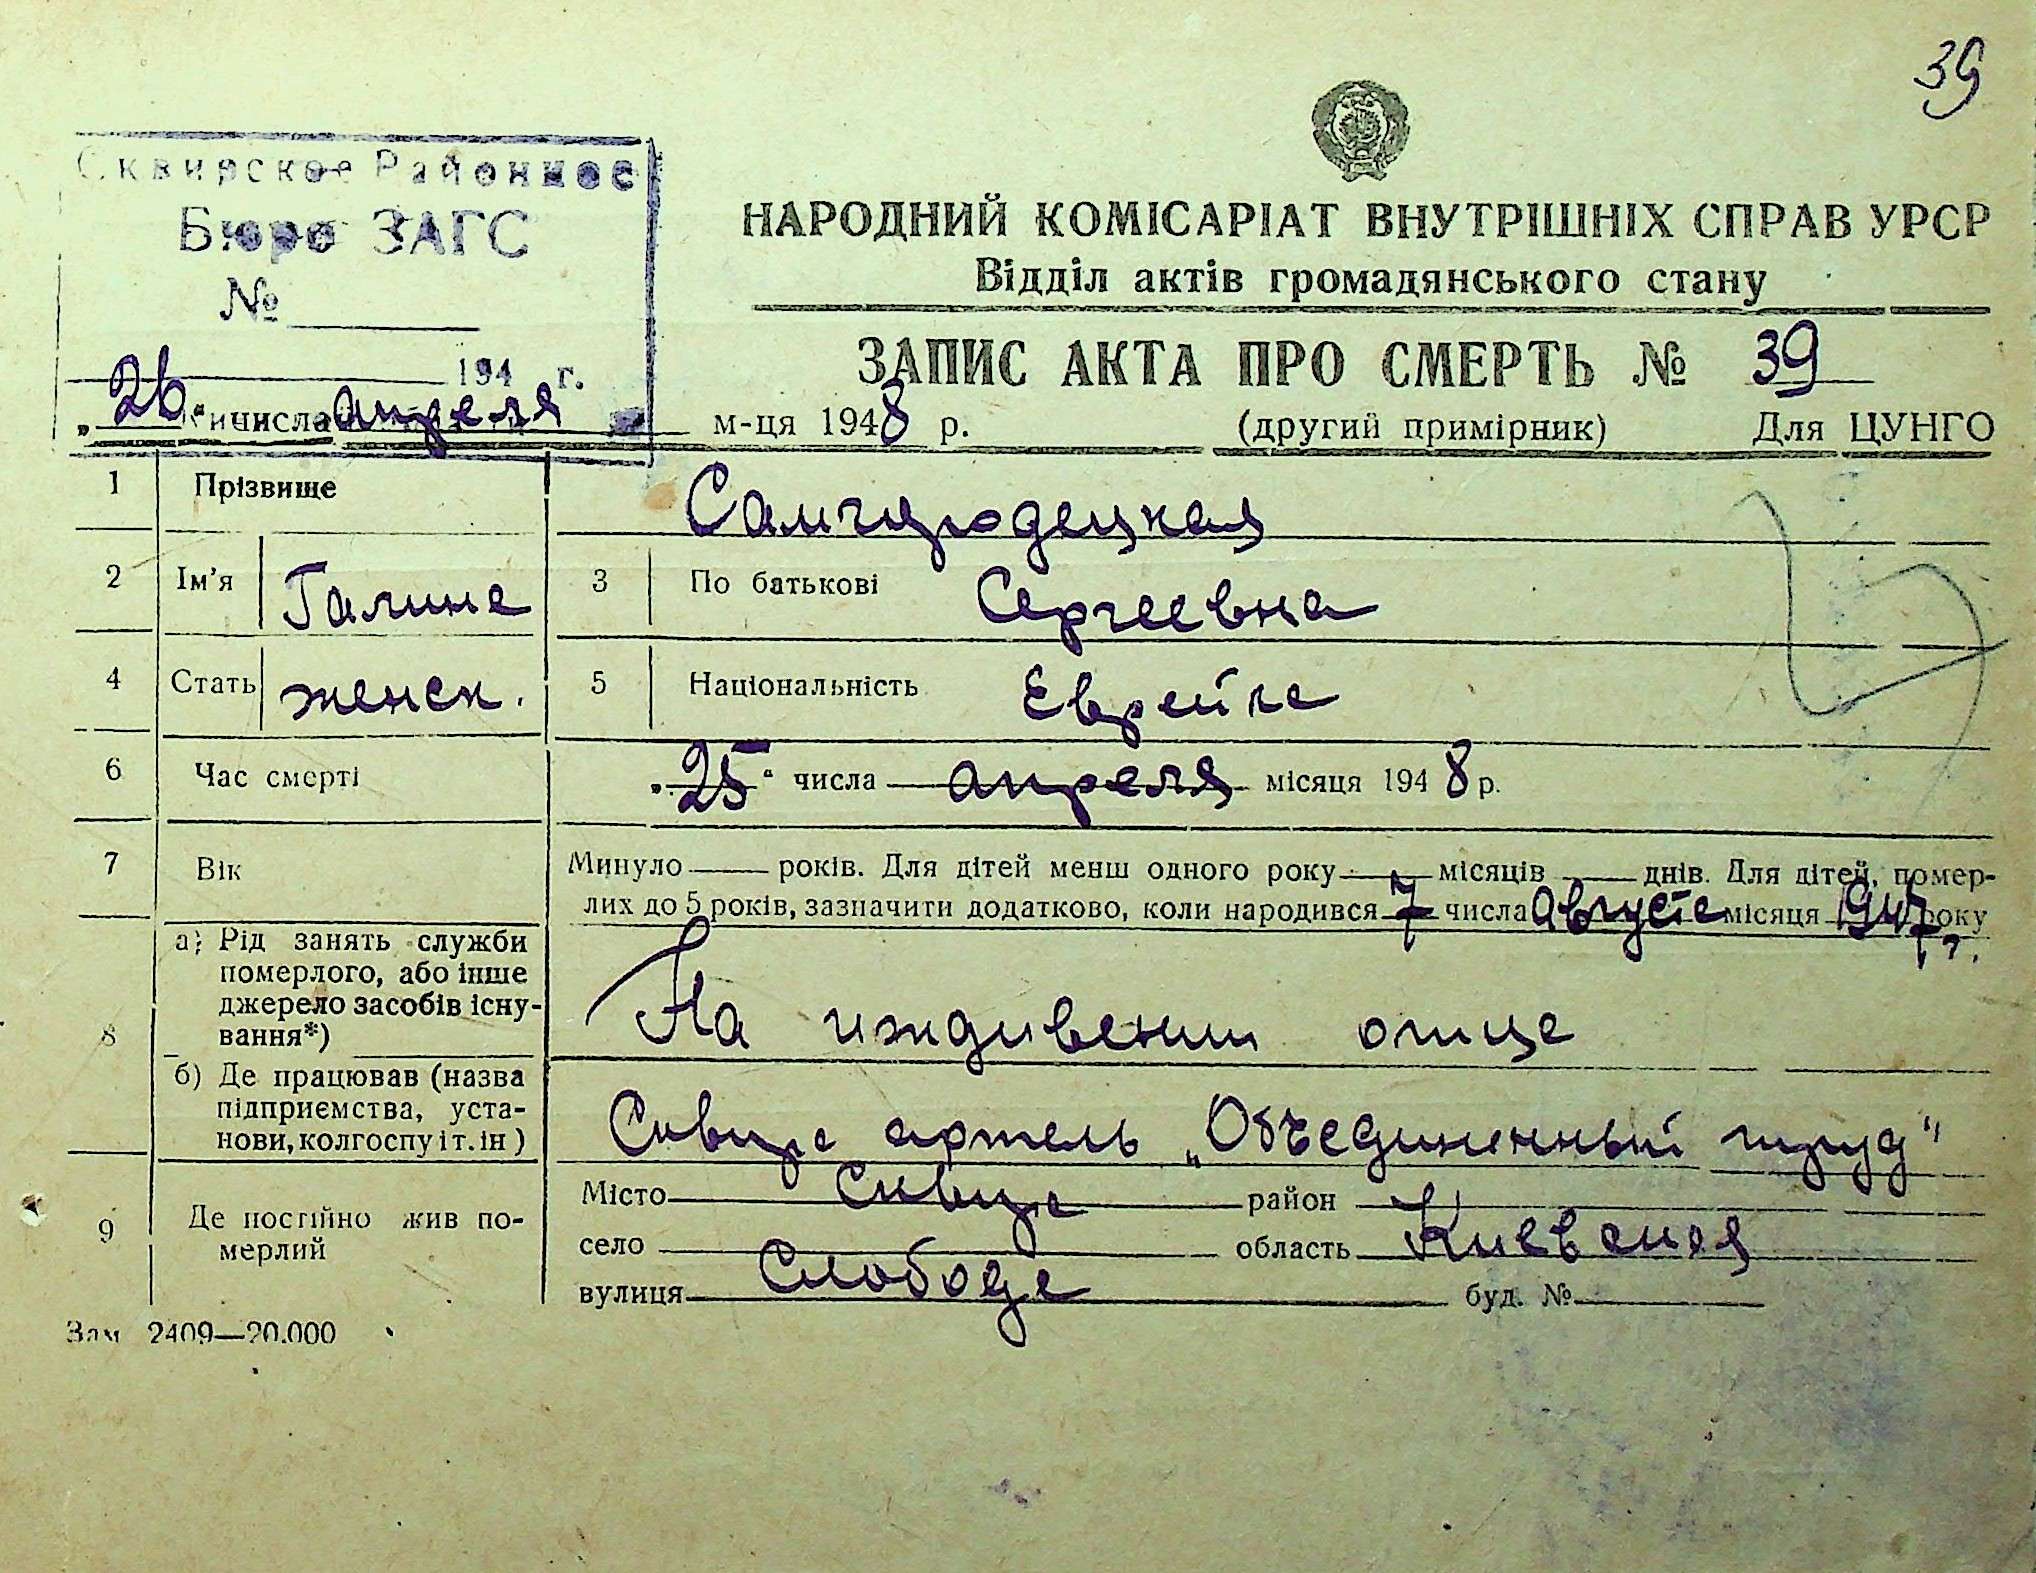 39
Сквирское Районное
Бюро ЗАГС
№
194 г.
НАРОДНИЙ КОМІСАРІАТ ВНУТРІШНІХ СПРАВ УРСР
Відділ актів громадянського стану
ЗАПИС АКТА ПРО СМЕРТЬ № 39
„26“ числа апреля м-ця 1948 р. (другий примірник) Для ЦУНГО
1 Прізвище Самгородецкая
2 Ім'я Галина 3 По батькові Сергеевна
4 Стать женск. 5 Національність Еврейка
6 Час смерті „25“ числа апреля місяця 1948 р.
7 Вік Минуло — років. Для дітей менш одного року — місяців — днів. Для дітей, помер-
лих до 5 років, зазначити додатково, коли народився 7 числа Августа місяця 1947 року г.
8 а) Рід занять служби
померлого, або інше
джерело засобів існу-
вання*) На иждивении отца
б) Де працював (назва
підприємства, уста-
нови, колгоспу і т. ін) Сквира артель „Объединенный труд"
9 Де постійно жив по-
мерлий
Місто Сквира район
село область Киевская
вулиця Слобода буд. №
Зам 2409—20.000